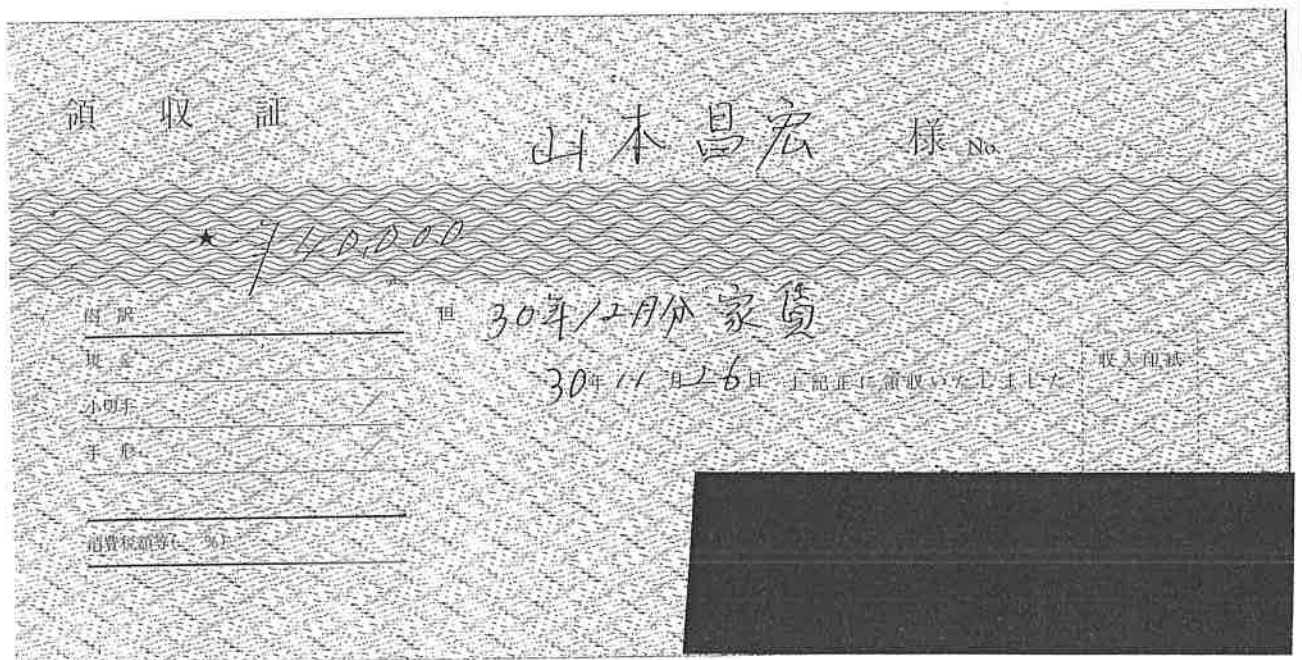 領収証
山本昌宏 様 No.
★ ¥110,000
内訳
現金
小切手
手形
消費税額等( %)
但 30年12月分家賃
30年11月26日 上記正に領収いたしました
収入印紙